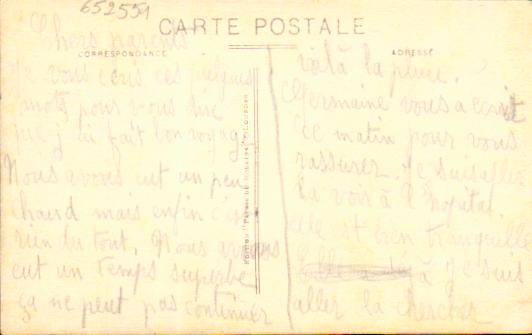 652551
CARTE POSTALE
CORRESPONDANCE
ADRESSE
Chers parents
Je vous ecris ces quelques
mots pour vous dire
que j'ai fait bon voyage
Nous avons eut un peu
chaud mais enfin c'est
rien du tout. Nous avons
eut un temps superbe
ça ne peut pas continuer
voilà la pluie.
Germaine vous a ecrit
ce matin pour vous
rassurer. Je suis allee
la voir à l'hopital.
elle est bien tranquille
à Je suis
aller la chercher